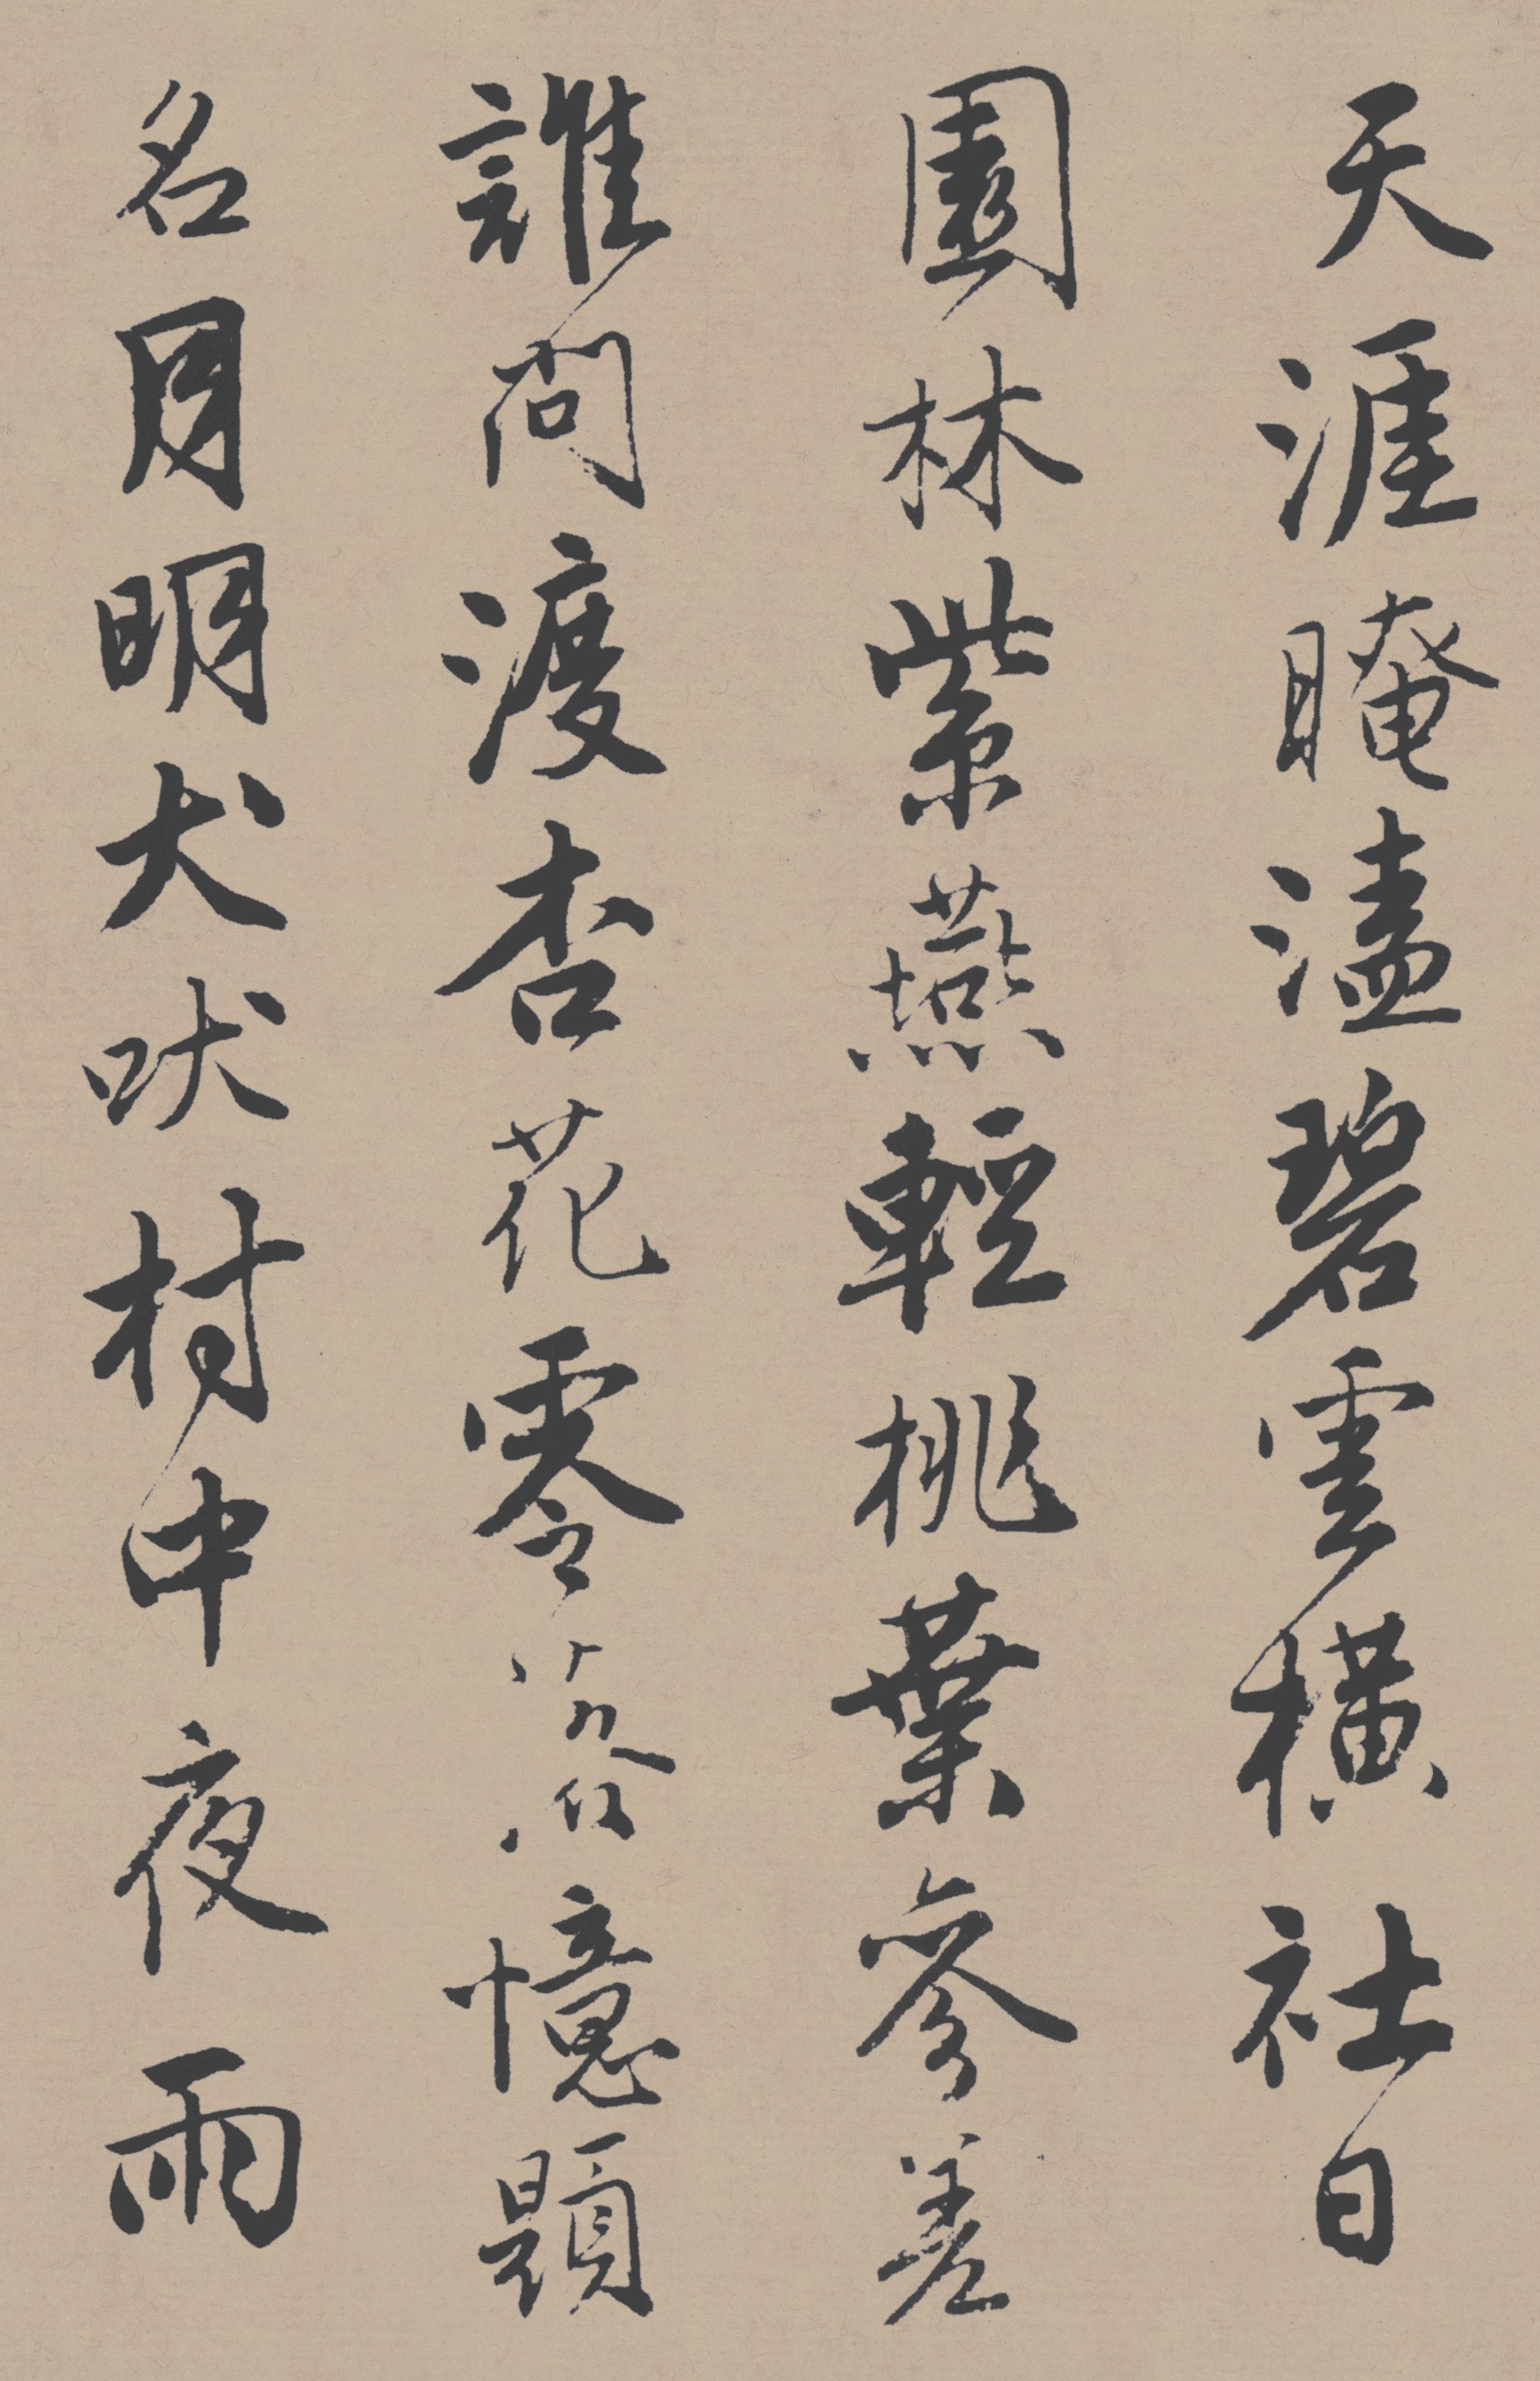 天涯晻溘碧雲橫社日
園林紫燕輕桃葉參差
誰問渡杏花零落憶題
名月明犬吠村中夜雨